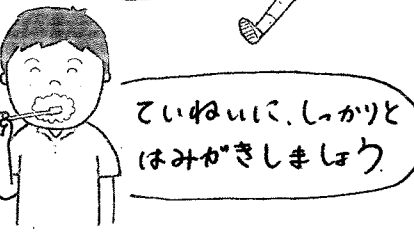 ていねいに、しっかりと
はみがきしましょう